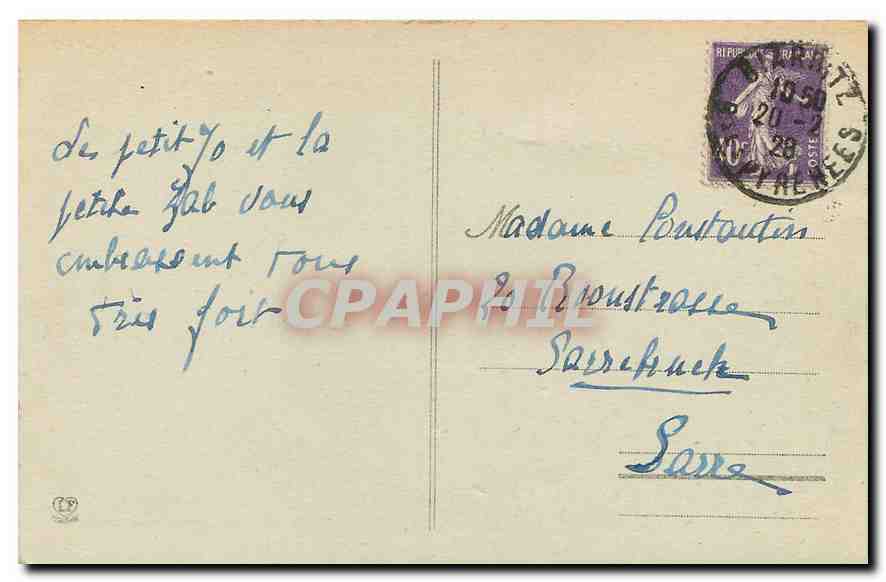 Les petit Jo et la
petite Zab vous
embrassent tous
très fort
REPUBLIQUE FRANCAISE
POSTES
BIARRITZ
10-50
20-2
28
PYRENEES
Madame Constantin
20
Sarrebruck
Sarre
CPAPHIL
LF